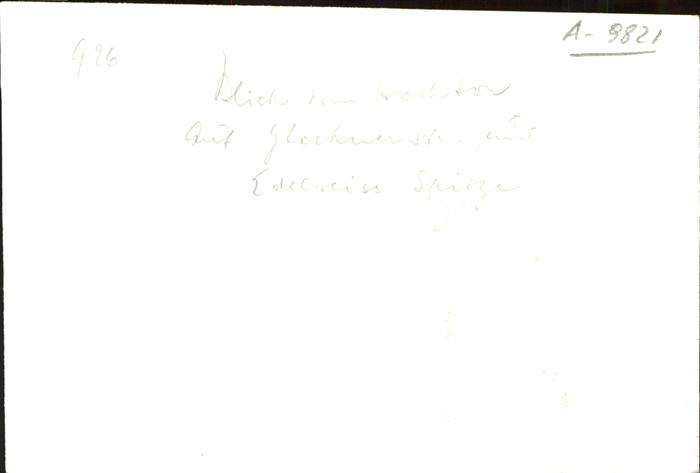 A-9821
926
Blick vom Hochtor
auf Glocknerstr. mit
Edelweiss Spitze